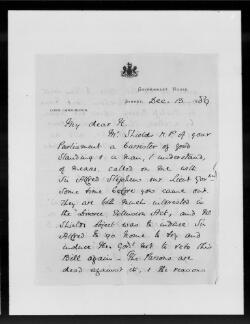 Government House,
Sydney. Dec. 13. 1889
My dear H.
Mr. Shiels M.P. of your
Parliament a barrister of good
Standing & a man, I understand,
of means, called on me with
Sir Alfred Stephen our Lieut Govr
some time before you came out.
They are both much interested in
the Divorce Extension Act, and Mr
Shiels object was to induce Sir
Alfred to go home to try and
induce the Govt not to veto this
Bill again – The Parsons are
dead against it, & the reasons